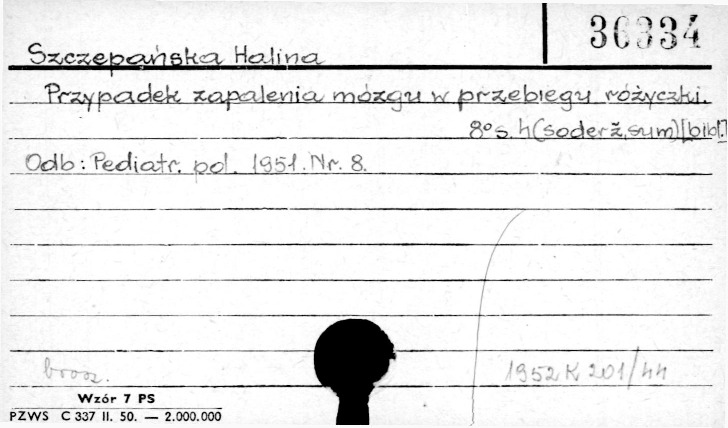 36334
Szczepańska Halina
Przypadek zapalenia mózgu w przebiegu różyczki.
8° s. h(soderž, sum)[bibl.]
Odb: Pediatr. pol. 1951. Nr. 8.
brosz.
1952 K 201/44
Wzór 7 PS
PZWS C 337 II. 50. — 2.000.000